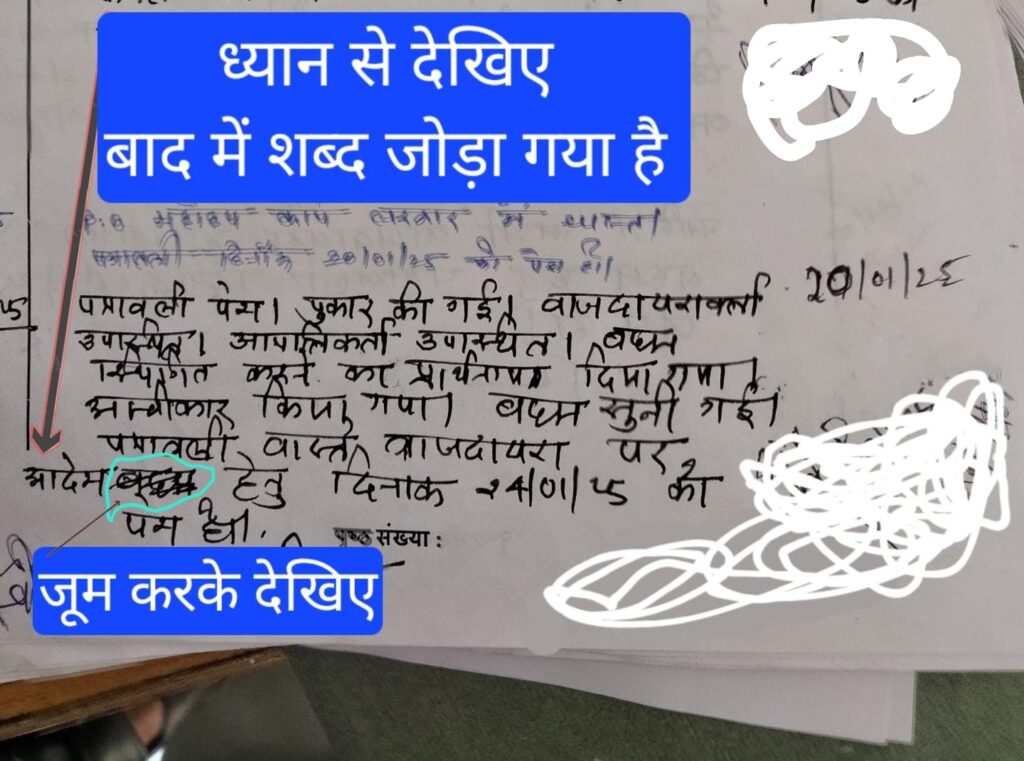 ध्यान से देखिए
बाद में शब्द जोड़ा गया है
20/01/25 को पेश हो।
20/01/25
पत्रावली पेश। पुकार की गई। वाजदायराकर्ता
उपस्थित। आपत्तिकर्ता उपस्थित। बहस
स्थगित करने का प्रार्थनापत्र दिया गया।
अस्वीकार किया गया। बहस सुनी गई।
पत्रावली वास्ते वाजदायरा पर
आदेश हेतु दिनांक 24/01/25 को
पेश हो।
पृष्ठ संख्या :
जूम करके देखिए